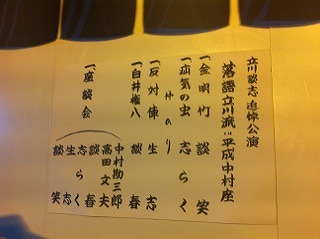 立川談志 追悼公演
落語立川流in平成中村座
一、金明竹 談笑
一、疝気の虫 志らく
一、反対俥 生志
一、白井権八 談春
一、座談会
中村勘三郎
高田文夫
談春
志らく
生志
談笑